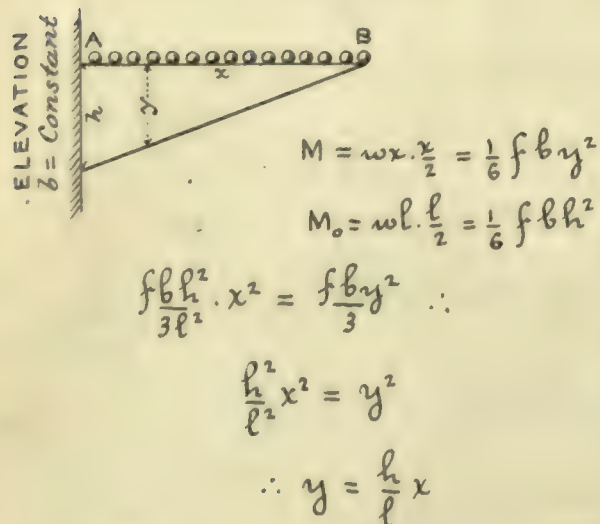 A B
x
y
h
ELEVATION
b = Constant
M = wx . x/2 = 1/6 f b y²
M₀ = wl . l/2 = 1/6 f b h²
fbh²/3l² . x² = fby²/3 ∴
h²/l² x² = y²
∴ y = h/l x